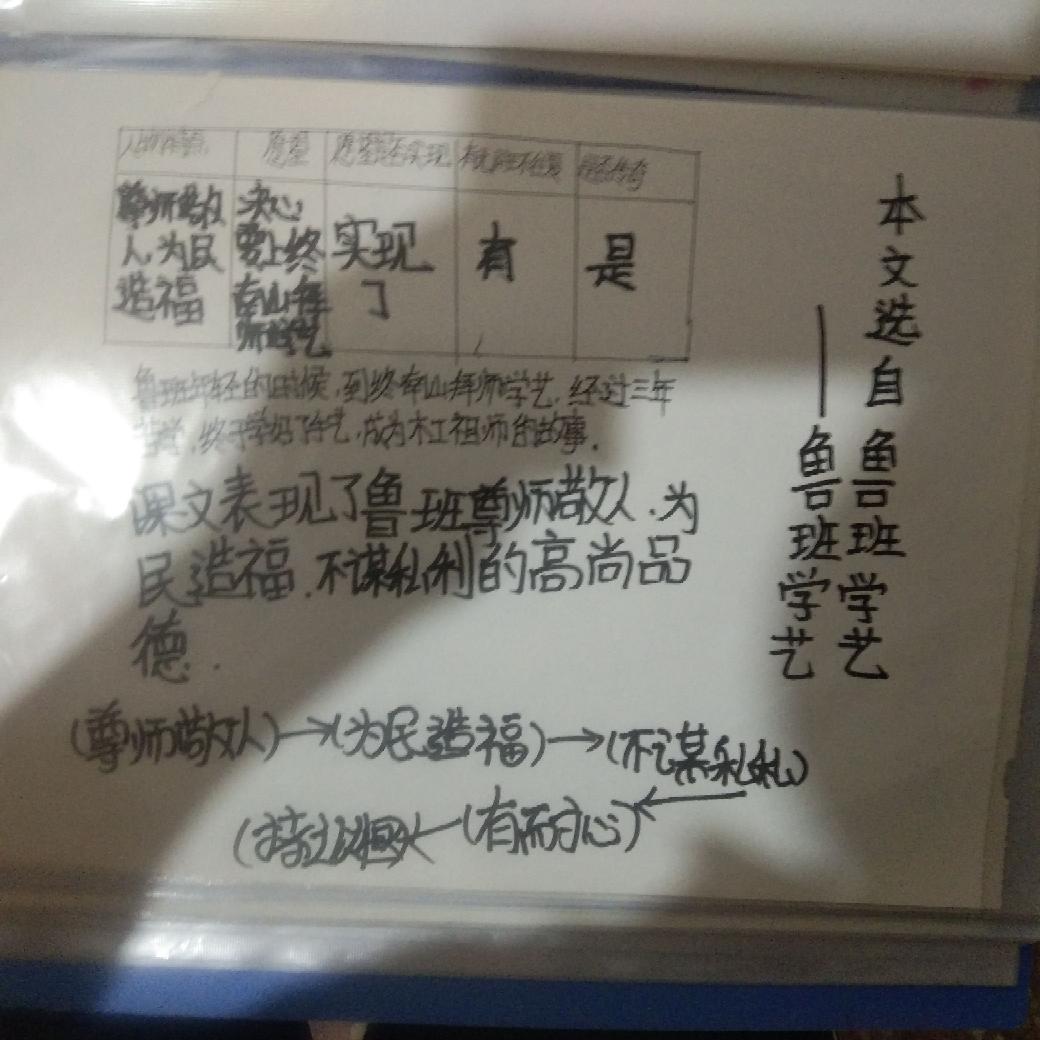 本文选自鲁班学艺
——鲁班学艺
人物特点 愿望 愿望是否实现
尊师敬人，为民造福 决心要上终南山拜师学艺 实现了 有 是
鲁班年轻的时候，到终南山拜师学艺，经过三年
苦学，终于学好了手艺，成为木工祖师的故事。
课文表现了鲁班尊师敬人，为
民造福，不谋私利的高尚品
德。
（尊师敬人）→（为民造福）→（不谋私利）
（有耐心）←